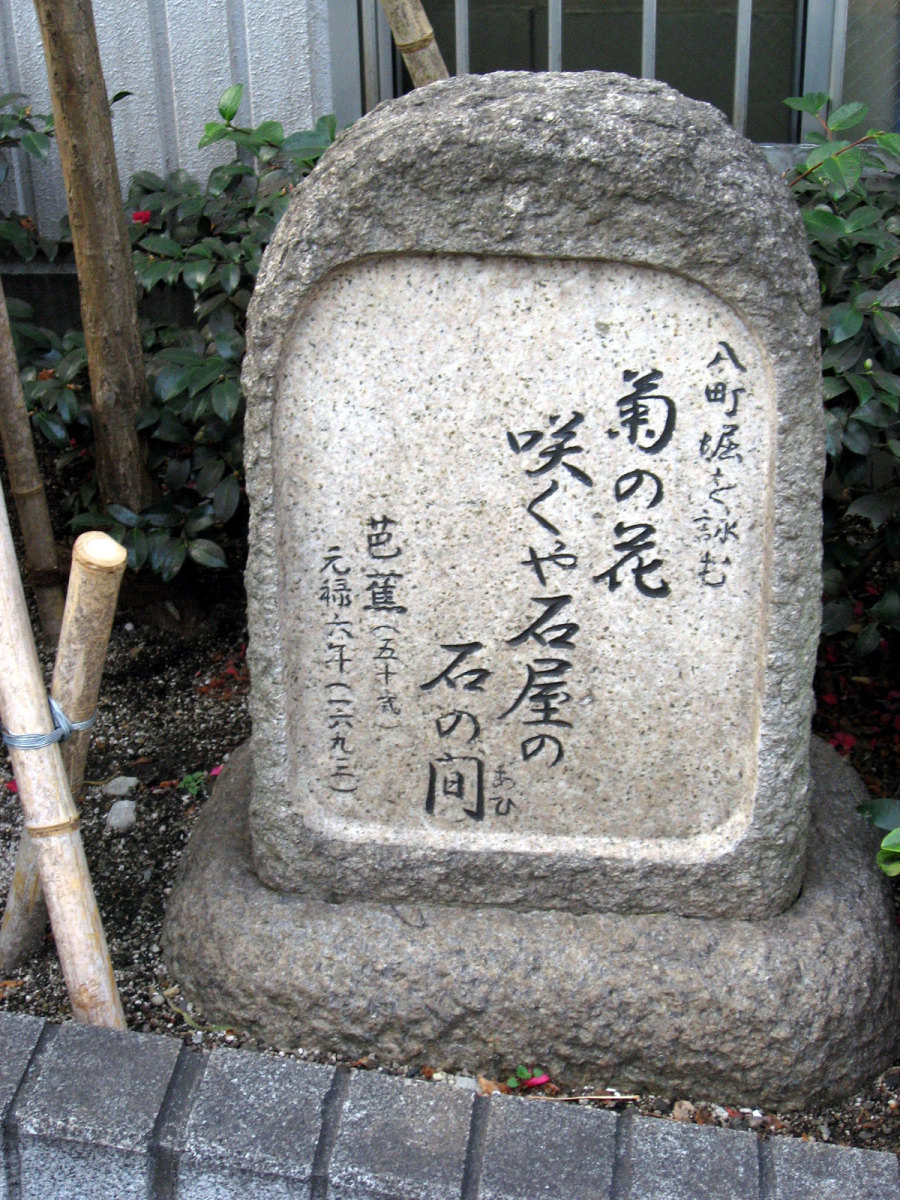 八町堀を詠む
菊の花
咲くや石屋の
石の間
あひ
芭蕉(五十歳)
元禄六年(一六九三)